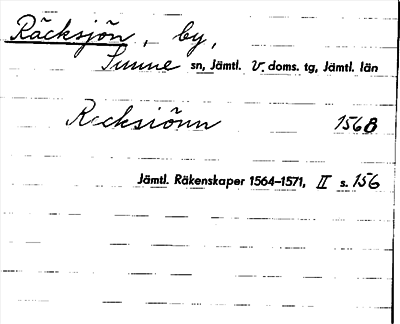 Räcksjön, by,
Sunne sn, Jämtl. v. doms. tg, Jämtl. län
Recksiönn 1568
Jämtl. Räkenskaper 1564–1571, II s. 156